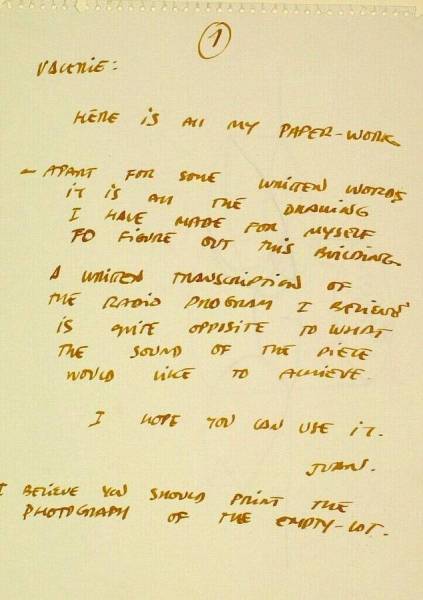 1
VALERIE:
HERE IS All MY PAPER-WORK
- APART FOR SOME WRITTEN WORDS
IT IS All THE DRAWING
I HAVE MADE FOR MYSELF
TO FIGURE OUT THIS BUILDING.
A WRITTEN TRANSCRIPTION OF
THE RADIO PROGRAM I BELIEVE
IS QUITE OPPOSITE TO WHAT
THE SOUND OF THE PIECE
WOULD LIKE TO ACHIEVE.
I HOPE YOU CAN USE IT.
JUAN.
I BELIEVE YOU SHOULD PRINT THE
PHOTOGRAPH OF THE EMPTY-LOT.